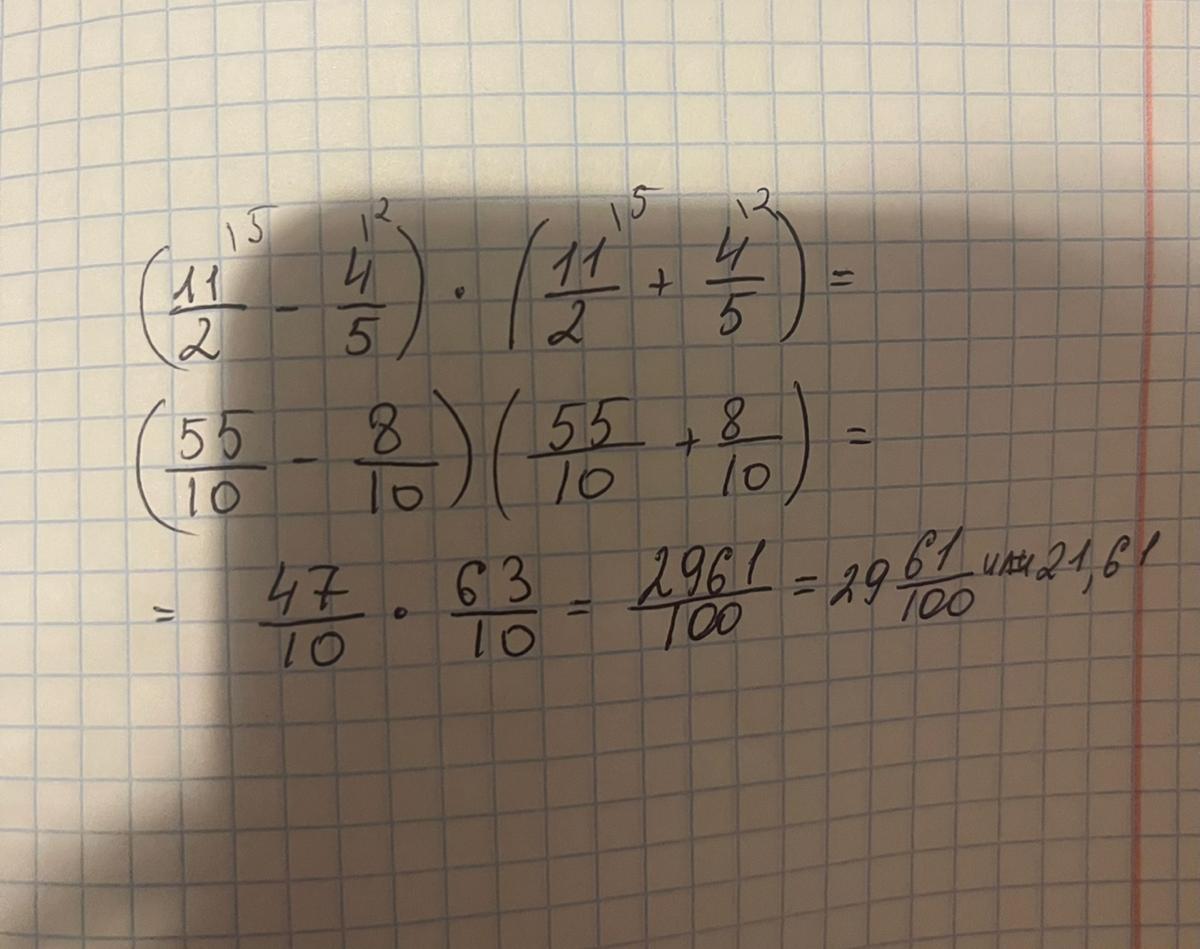 (11/2 \5 - 4/5 \2) · (11/2 \5 + 4/5 \2) =
(55/10 - 8/10)(55/10 + 8/10) =
= 47/10 · 63/10 = 2961/100 = 29 61/100 или 21,61